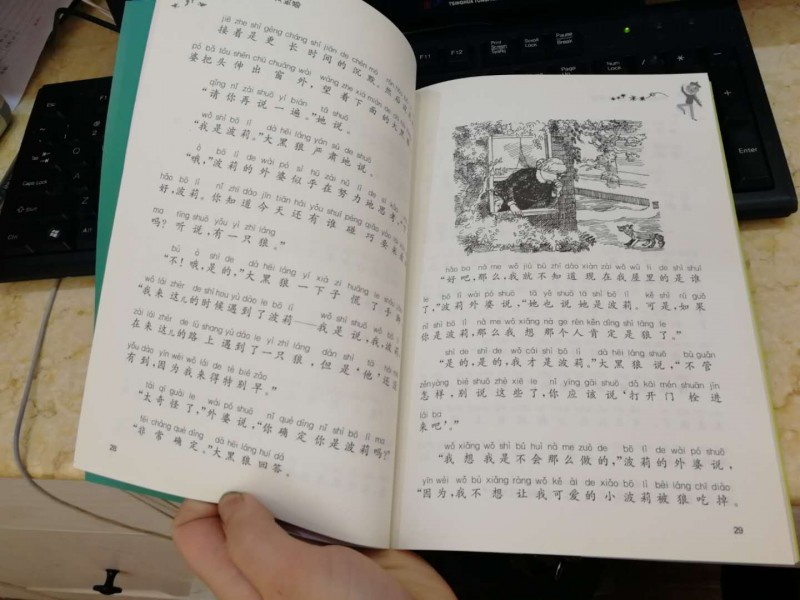 jiē zhe shì gèng cháng shí jiān de chén mò
接着是更长时间的沉默。
pó bǎ tóu shēn chū chuāng wài wàng zhe xià miàn de
婆把头伸出窗外,望着下面的大黑
qǐng nǐ zài shuō yí biàn tā shuō
“请你再说一遍。”她说。
wǒ shì bō lì dà hēi láng yán sù de shuō
“我是波莉。”大黑狼严肃地说。
ò bō lì de wài pó sì hū zài nǔ lì de sī
“哦,”波莉的外婆似乎在努力地思考,
hǎo bō lì nǐ zhī dào jīn tiān hái yǒu shuí pèng qiǎo yào lái
好,波莉。你知道今天还有谁碰巧要来
ma tīng shuō yǒu yì zhī láng
吗?听说,有一只狼。”
bù ò shì de dà hēi láng yí xià zi huāng le
“不!哦,是的,”大黑狼一下子慌了手脚
wǒ lái zhè r de shí hou yù dào le bō lì wǒ shì shuō wǒ
“我来这儿的时候遇到了波莉——我是说,我,波莉
zài lái zhè r de lù shang yù dào le yì zhī láng dàn shì tā
在来这儿的路上遇到了一只狼,但是‘他’还没
yǒu dào yīn wèi wǒ lái de tè bié zǎo
有到,因为我来得特别早。”
tài qí guài le wài pó shuō nǐ què dìng nǐ shì bō lì ma
“太奇怪了,”外婆说,“你确定你是波莉吗?”
fēi cháng què dìng dà hēi láng huí dá
“非常确定。”大黑狼回答。
28
hǎo ba nà me wǒ jiù bù zhī dào xiàn zài wǒ wū li de shì shuí
“好吧,那么,我就不知道现在我屋里的是谁
le bō lì wài pó shuō tā yě shuō tā shì bō lì kě shì rú guǒ
了,”波莉外婆说,“她也说她是波莉。可是,如果
nǐ shì bō lì nà me wǒ xiǎng nà ge rén kěn dìng shì láng le
你是波莉,那么我想那个人肯定是狼了。”
shì de shì de wǒ cái shì bō lì dà hēi láng shuō bù guǎn
“是的,是的,我才是波莉。”大黑狼说,“不管
zěn yàng bié shuō zhè xiē le nǐ yīng gāi shuō dǎ kāi mén shuān jìn
怎样,别说这些了,你应该说‘打开门栓进
lái ba
来吧’。”
wǒ xiǎng wǒ shì bú huì nà me zuò de bō lì de wài pó shuō
“我想我是不会那么做的,”波莉的外婆说,
yīn wèi wǒ bù xiǎng ràng wǒ kě ài de xiǎo bō lì bèi láng chī diào
“因为,我不想让我可爱的小波莉被狼吃掉。
29
F11
F12
Print
Screen
SysRq
Scroll
Lock
Pause
Break
Num
Lock
Enter
Caps Lock
Ctrl